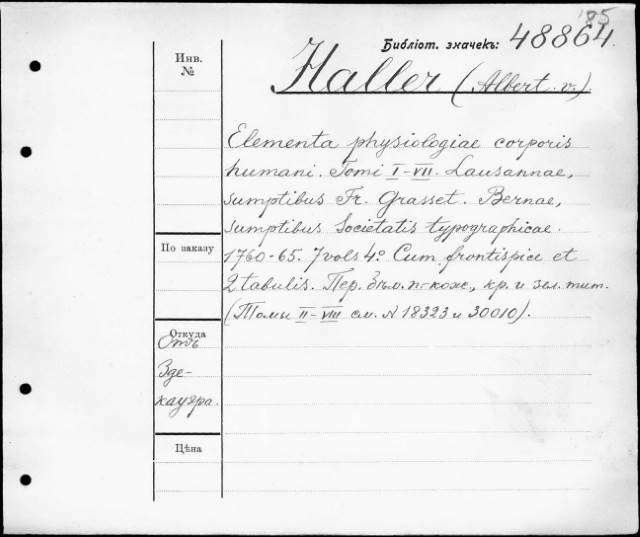 '85
Библіот. значекъ: 48864.
Инв.
№
Haller (Albert v.)
Elementa physiologiae corporis
humani. Tomi I-VII. Lausannae,
sumptibus Fr. Grasset. Bernae,
sumptibus Societatis typographicae.
1760-65. 7 vols 4º. Cum frontispice et
2 tabulis. Пер. бѣл. п-кожс, кр. и зел. тит.
(Томы II-VIII см. № 18323 и 30010).
По заказу
Откуда
Отъ
Зде-
кауэра.
Цѣна